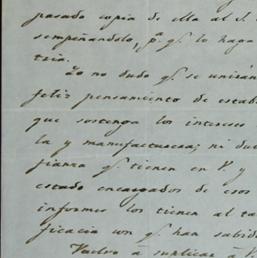 pasado copia de ella al S.
sempeñandolo, p.ª q.e lo haga
tria.
Yo no dudo q.e se unirán
feliz pensamiento de estab
que sostenga los intereses
la y manufacturera; ni du
fianza q.e tienen en V. y
estado encargados de esos
informes los tienen al ta
ficacia con q.e han sabid
Vuelvo á suplicar á V.